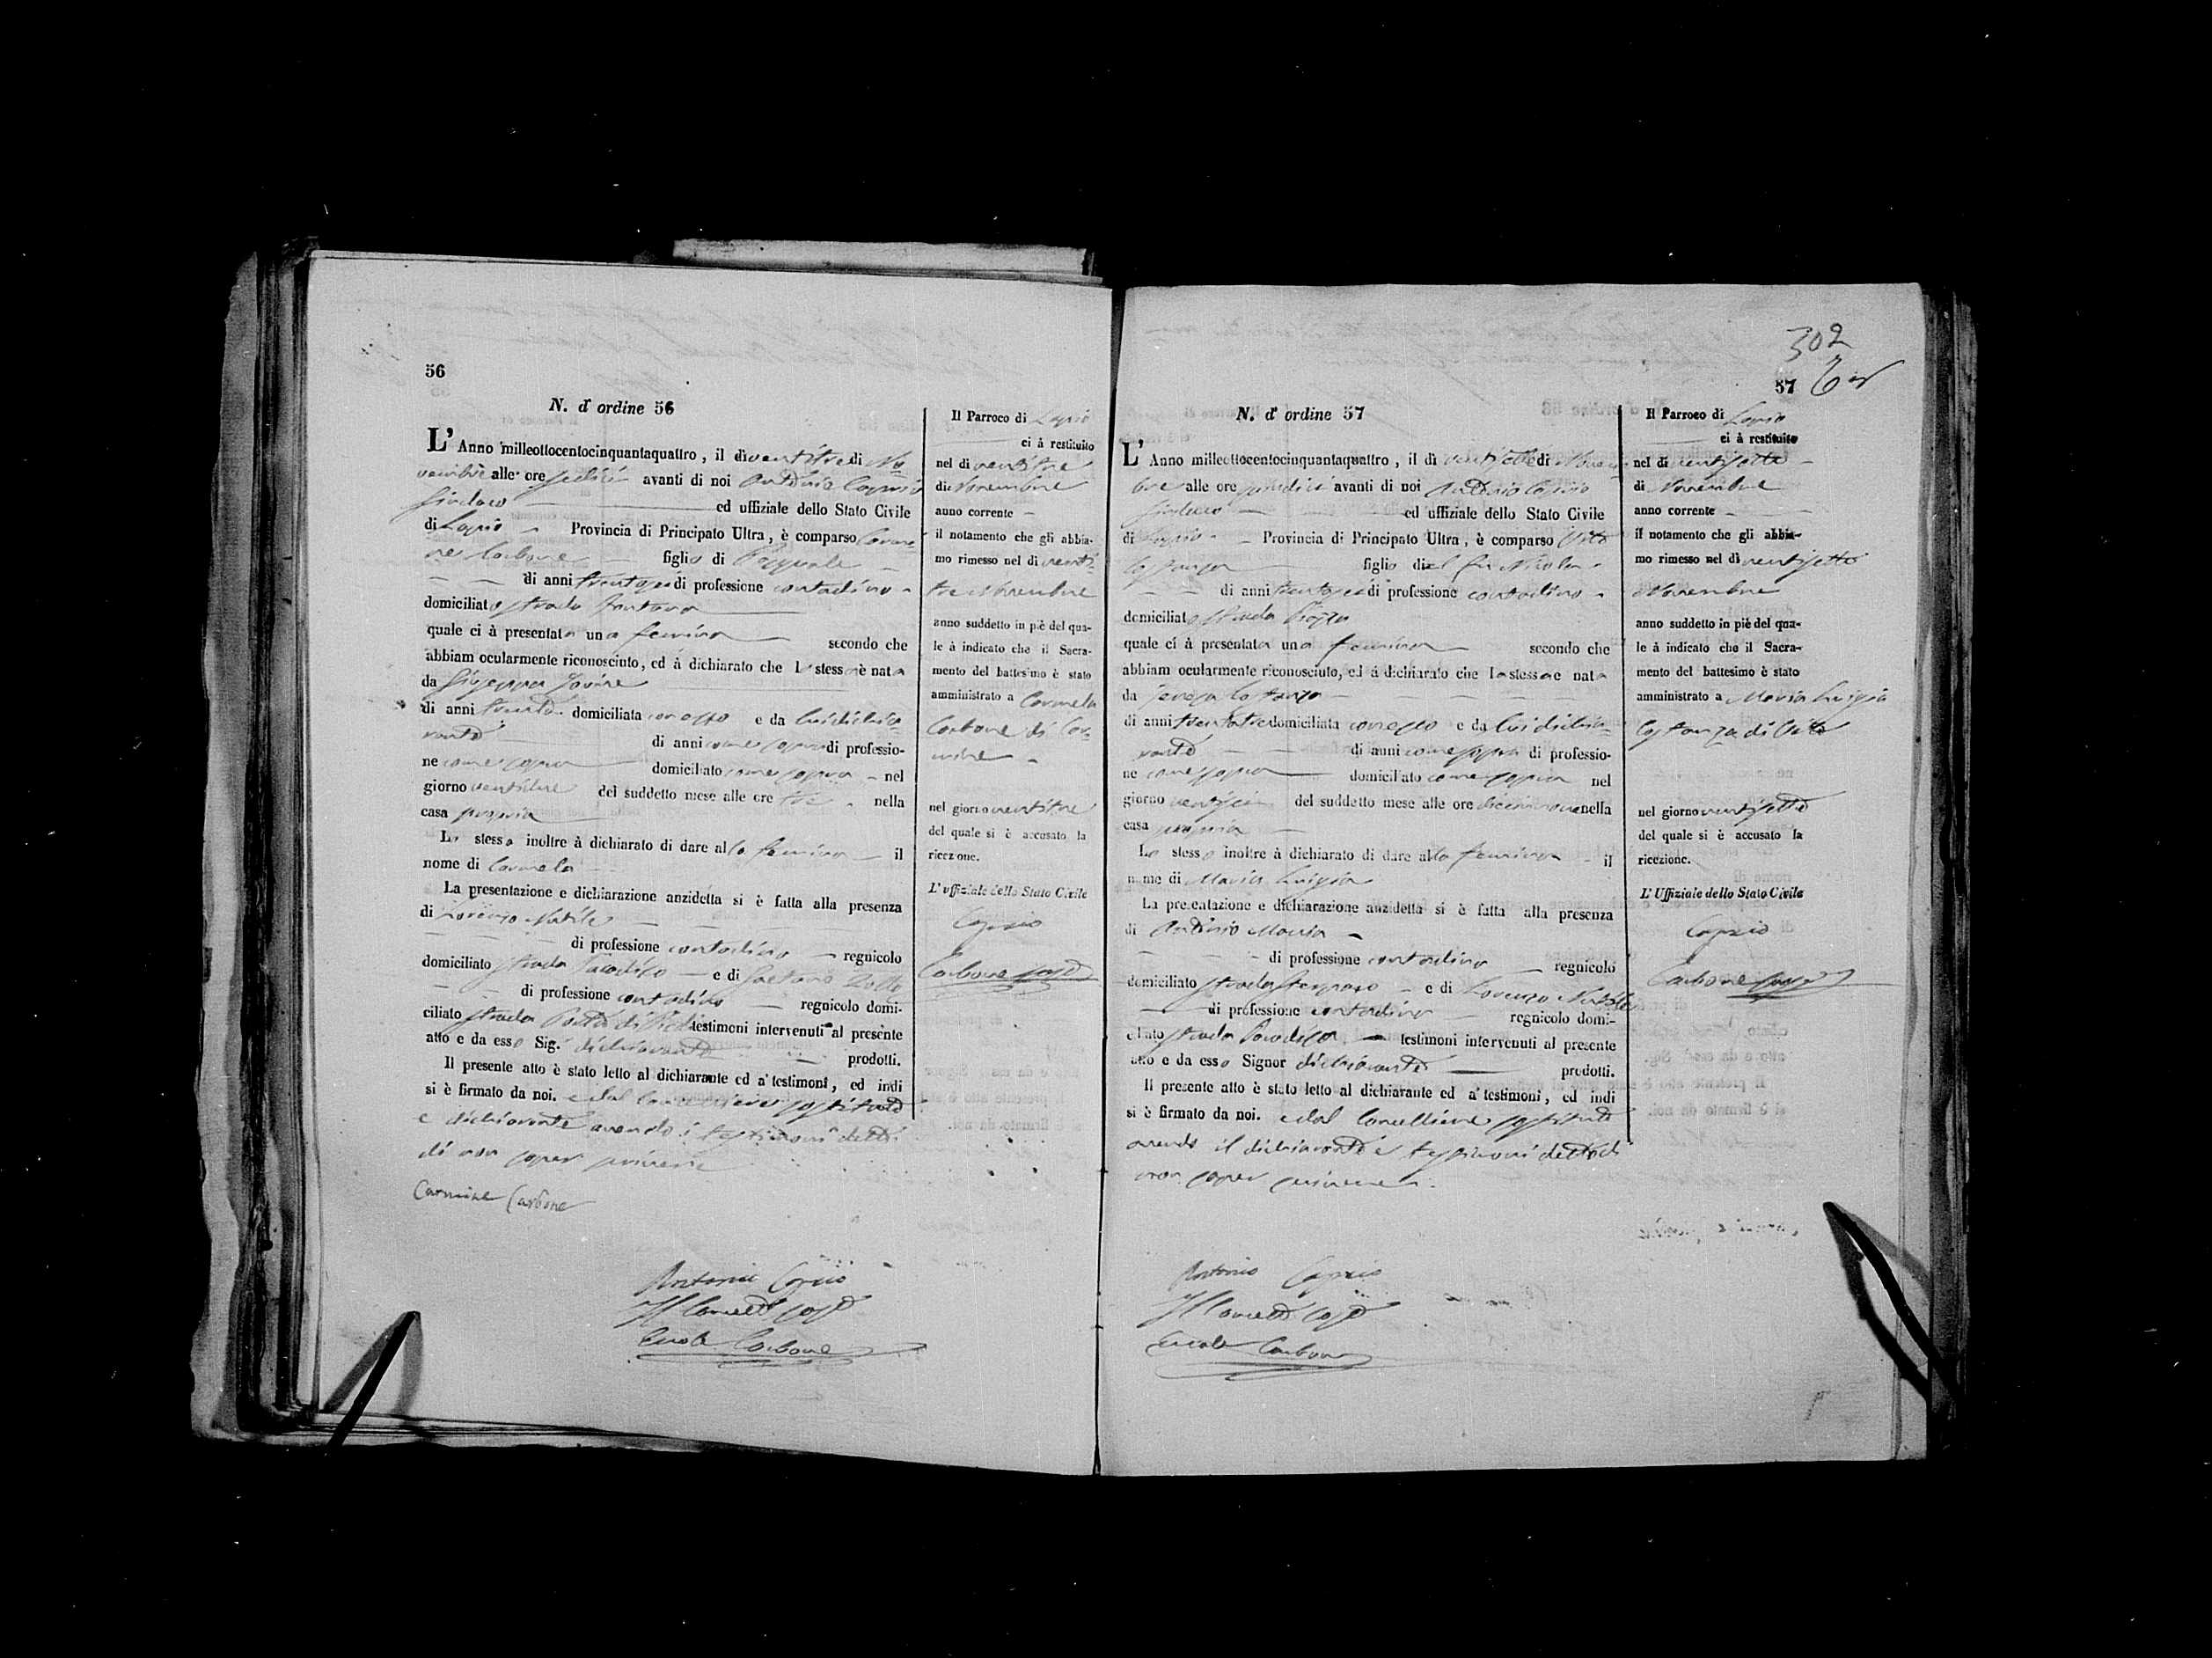 56
N. d' ordine 56
L' Anno milleottocentocinquantaquattro, il dì ventitre di No=
vembre alle ore sedici avanti di noi Antonio Caprio
Sindaco ed uffiziale dello Stato Civile
di Lapio Provincia di Principato Ultra, è comparso Carmi=
ne Carbone figlio di Pasquale
di anni trentasei di professione contadino
domiciliato strada Fontana
quale ci à presentata una femina secondo che
abbiam ocularmente riconosciuto, ed à dichiarato che la stessa è nata
da Giuseppa Iovine
di anni trenta domiciliata con esso e da lui dichia=
rante di anni come sopra di professio-
ne come sopra domiciliato come sopra nel
giorno ventidue del suddetto mese alle ore tre nella
casa propria
Lo stesso inoltre à dichiarato di dare alla femina il
nome di Carmela
La presentazione e dichiarazione anzidetta si è fatta alla presenza
di Lorenzo Nutile
di professione contadino regnicolo
domiciliato strada Paradiso e di Gaetano
di professione contadino regnicolo domi-
ciliato strada Porta di testimoni intervenuti al presente
atto e da esso Sig.r dichiarante prodotti.
Il presente atto è stato letto al dichiarante ed a' testimoni, ed indi
si è firmato da noi. e dal Cancelliere sostituto
e dichiarante avendo i testimoni detto
di non saper scrivere
Carmine Carbone
Antonio Caprio
Il Cancell.e sost.o
Ercole Carbone
Il Parroco di Lapio
ci à restituito
nel dì ventitre
di Novembre
anno corrente
il notamento che gli abbia-
mo rimesso nel dì venti=
tre Novembre
anno suddetto in piè del qua-
le à indicato che il Sacra-
mento del battesimo è stato
amministrato a Carmela
Carbone di Car=
mine
nel giorno ventitre
del quale si è accusato la
ricezione.
L' uffiziale dello Stato Civile
Caprio
Carbone sost.o
302
57
N. d' ordine 57
L' Anno milleottocentocinquantaquattro, il dì ventisette di Novem=
bre alle ore quindici avanti di noi Antonio Caprio
Sindaco ed uffiziale dello Stato Civile
di Lapio Provincia di Principato Ultra, è comparso Vito
Costanza figlio del fu Nicola
di anni trentasei di professione contadino
domiciliato strada Piazza
quale ci à presentata una femina secondo che
abbiam ocularmente riconosciuto, ed à dichiarato che la stessa è nata
da Teresa Costanzo
di anni trentatre domiciliata con esso e da lui dichia=
rante di anni come sopra di professio-
ne come sopra domiciliato come sopra nel
giorno ventisei del suddetto mese alle ore diecinnove nella
casa propria
Lo stesso inoltre à dichiarato di dare alla femina il
nome di Maria Luigia
La presentazione e dichiarazione anzidetta si è fatta alla presenza
di Antonio Maria
di professione contadino regnicolo
domiciliato strada e di Lorenzo Nutile
di professione contadino regnicolo domi-
ciliato strada Paradiso testimoni intervenuti al presente
atto e da esso Signor dichiarante prodotti.
Il presente atto è stato letto al dichiarante ed a' testimoni, ed indi
si è firmato da noi. e dal Cancelliere sostituto
avendo il dichiarante e testimoni detto di
non saper scrivere
Antonio Caprio
Il Cancell.e sost.o
Ercole Carbone
Il Parroco di Lapio
ci à restituito
nel dì ventisette
di Novembre
anno corrente
il notamento che gli abbia-
mo rimesso nel dì ventisette
Novembre
anno suddetto in piè del qua-
le à indicato che il Sacra-
mento del battesimo è stato
amministrato a Maria Luigia
Costanza di Vito
nel giorno ventisette
del quale si è accusato la
ricezione.
L' Uffiziale dello Stato Civile
Caprio
Carbone sost.o